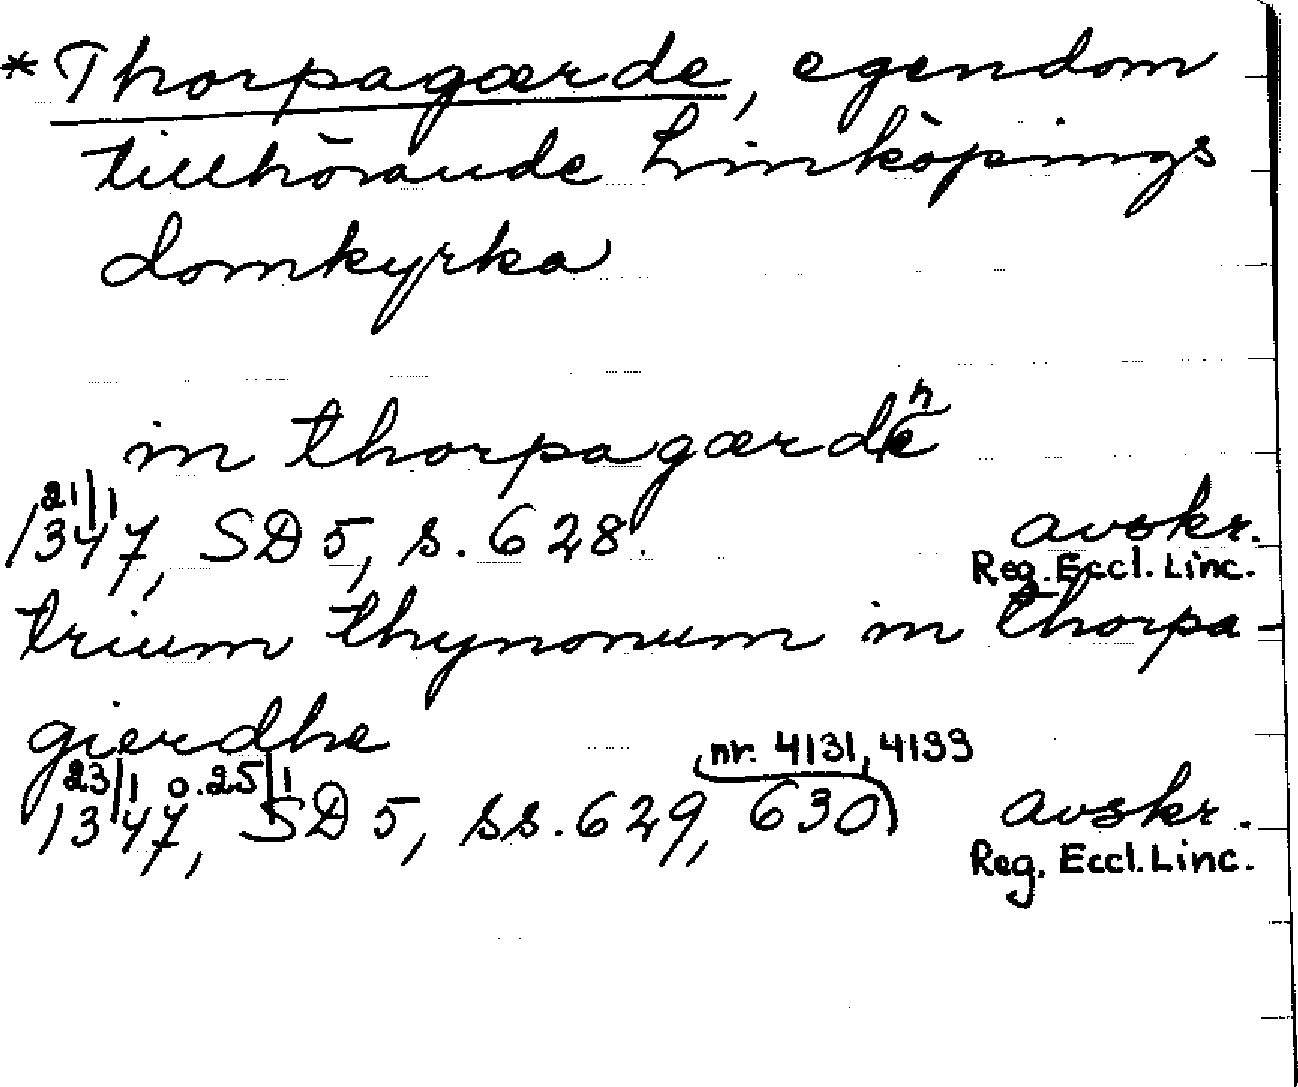 *Thorpagærde, egendom
tillhörande Linköpings
domkyrka
in thorpagærdhe
21/1 1347, SD 5, s. 628. avskr.
Reg. Eccl. Linc.
trium thynonum in thorpa-
gierdhe
nr. 4131, 4133
23/1 o. 25/1 1347, SD 5, ss. 629, 630 avskr.
Reg. Eccl. Linc.